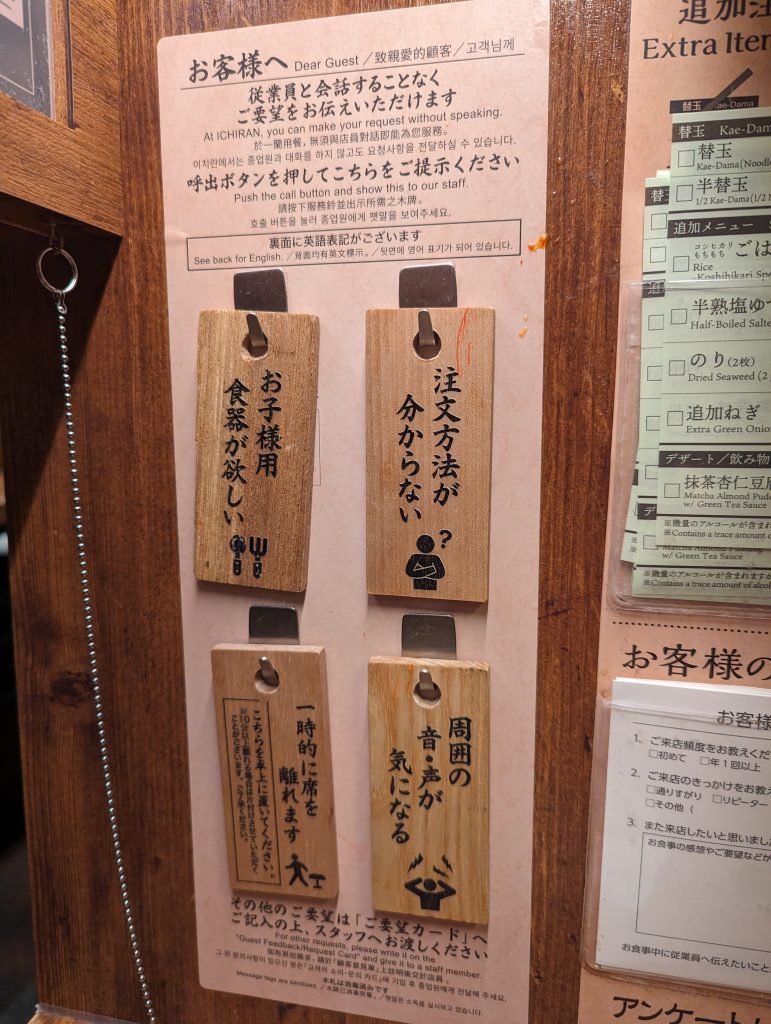 お客様へ Dear Guest ／致親愛的顧客／고객님께
従業員と会話することなく
ご要望をお伝えいただけます
At ICHIRAN, you can make your request without speaking.
於一蘭用餐，無須與店員對話即能為您服務。
이치란에서는 종업원과 대화를 하지 않고도 요청사항을 전달하실 수 있습니다.
呼出ボタンを押してこちらをご提示ください
Push the call button and show this to our staff.
請按下服務鈴並出示所需之木牌。
호출 버튼을 눌러 종업원에게 팻말을 보여주세요.
裏面に英語表記がございます
See back for English. ／背面均有英文標示。／뒷면에 영어 표기가 되어 있습니다.
お子様用
食器が欲しい
注文方法が
分からない
?
一時的に席を
離れます
こちらを卓上に置いてください。
※10分以上離れる場合は片付けさせていただく
ことがございます。ご了承ください。
周囲の
音・声が
気になる
その他のご要望は「ご要望カード」へ
ご記入の上、スタッフへお渡しください
For other requests, please write it on the
"Guest Feedback/Request Card" and give it to a staff member.
如有其他需求，請於「顧客意見單」上註明後交於店員。
그 외 문의사항이 있으신 분은 「고객의 소리・문의 카드」에 기입 후 종업원에게 전달해 주세요.
木札は消毒済みです
Message tags are sanitized. ／木牌已消毒完畢。／팻말은 소독을 실시하고 있습니다.
追加注
Extra Item
替玉 Kae-Dama
替玉 Kae-Dam
替玉
Kae-Dama(Noodl
半替玉
1/2 Kae-Dama(1/2
追加メニュー
コシヒカリ
もちもち
ごは
Rice
-Koshihikari Spe
半熟塩ゆ
Half-Boiled Salte
のり(2枚)
Dried Seaweed (2
追加ねぎ
Extra Green Onio
デザート／飲み物
抹茶杏仁豆腐
Matcha Almond Pudd
w/ Green Tea Sauce
※微量のアルコールが含まれ
※Contains a trace amount o
Matcha Almond Pudding
w/ Green Tea Sauce
※微量のアルコールが含まれますが
※Contains a trace amount of alcoh
お客様の
お客様
1. ご来店頻度をお教えくだ
□初めて □年1回以上
2. ご来店のきっかけをお教え
□通りすがり □リピーター
□その他 (
3. また来店したいと思いまし
お食事の感想やご要望など
お食事中に従業員へ伝えたいこと
アンケート